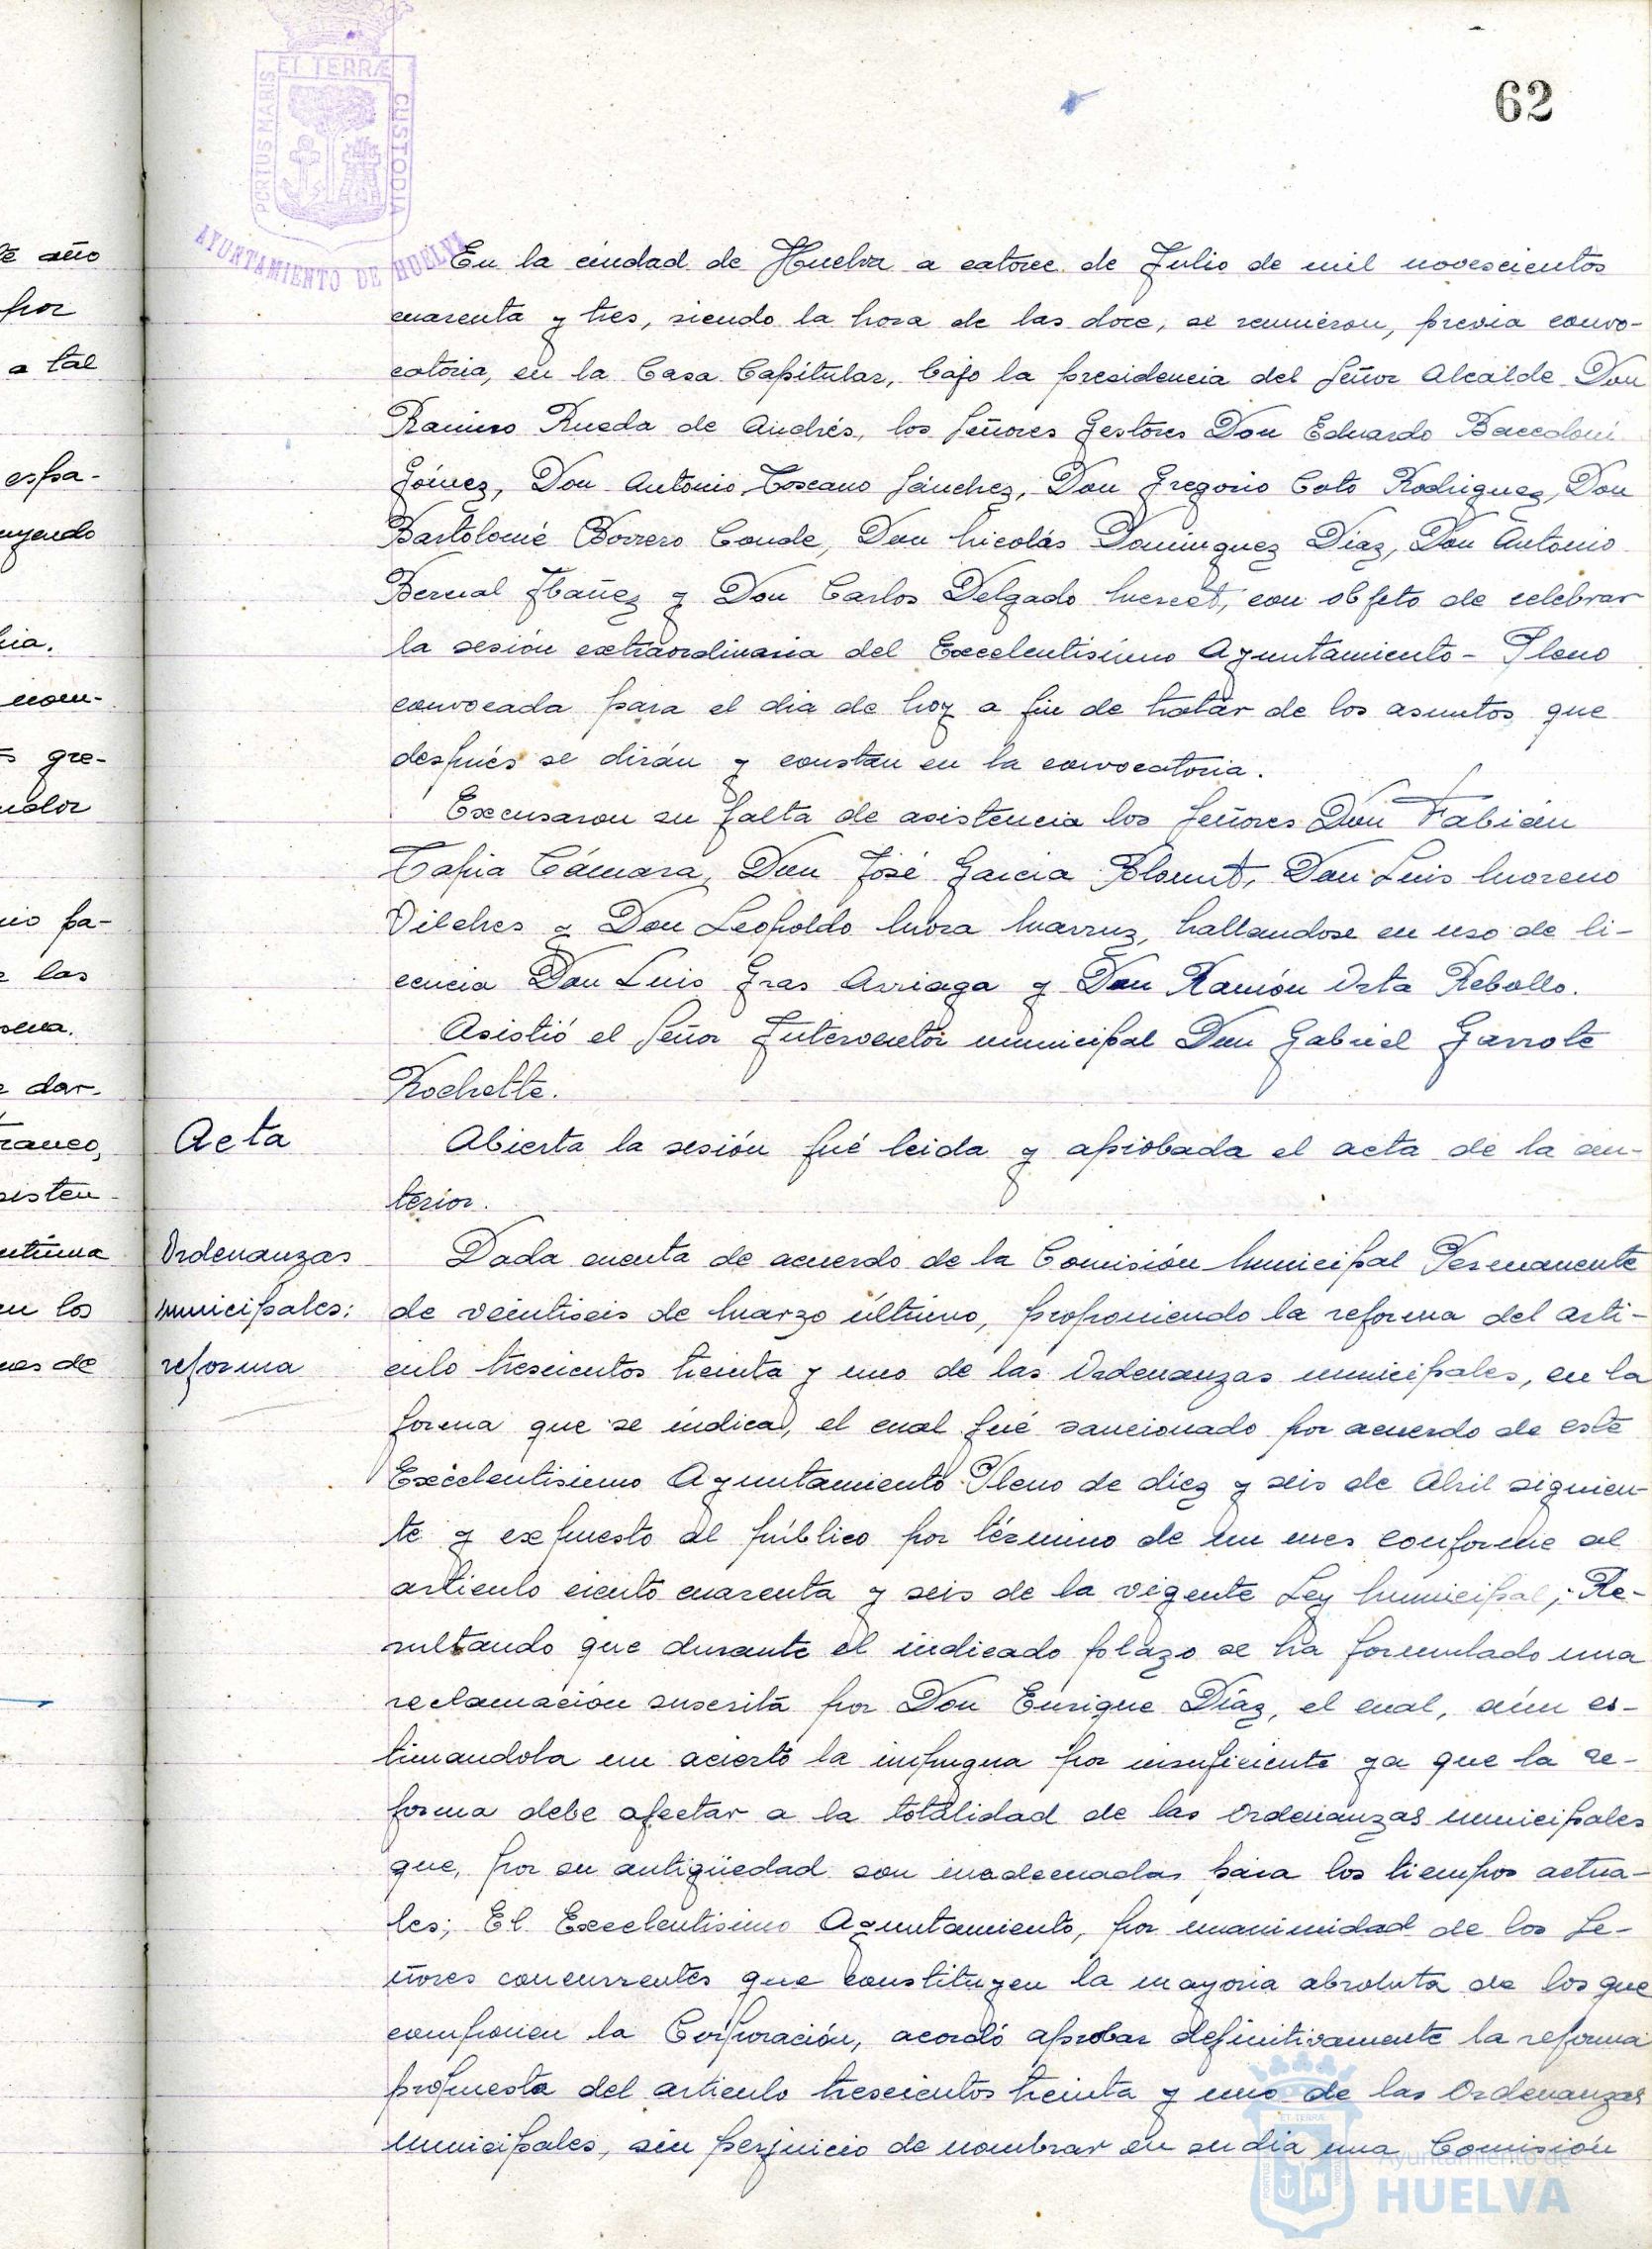 62
ET TERRÆ
PORTUS MARIS
CUSTODIA
AYUNTAMIENTO DE HUELVA
En la ciudad de Huelva a catorce de Julio de mil novescientos
cuarenta y tres, siendo la hora de las doce, se reunieron, previa convo-
catoria, en la Casa Capitular, bajo la presidencia del Señor Alcalde Don
Ramiro Rueda de Andrés, los Señores Gestores Don Eduardo
Gómez, Don Antonio Toscano Sánchez, Don Gregorio Coto Rodriguez, Don
Bartolomé Borrero Conde, Don Nicolás Dominguez Diaz, Don Antonio
Bernal Ibañez y Don Carlos Delgado, con objeto de celebrar
la sesión extraordinaria del Excelentisimo Ayuntamiento-Pleno
convocada para el dia de hoy a fin de tratar de los asuntos que
después se dirán y constan en la convocatoria.
Excusaron su falta de asistencia los Señores Don Fabián
Tapia Cámara, Don José Garcia, Don Luis Moreno
Vilches y Don Leopoldo Mora, hallandose en uso de li-
cencia Don Luis Gras Arriaga y Don Ramón Orta Rebollo.
Asistió el Señor Interventor municipal Don Gabriel Garrote
Rochette.
Acta
Abierta la sesión fué leida y aprobada el acta de la an-
terior.
Ordenanzas
municipales:
reforma
Dada cuenta de acuerdo de la Comisión Municipal Permanente
de veintiseis de Marzo último, proponiendo la reforma del arti-
culo trescientos treinta y uno de las Ordenanzas municipales, en la
forma que se indica, el cual fué sancionado por acuerdo de este
Excelentisimo Ayuntamiento Pleno de diez y seis de Abril siguien-
te y expuesto al público por término de un mes conforme al
articulo ciento cuarenta y seis de la vigente Ley Municipal; Re-
sultando que durante el indicado plazo se ha formulado una
reclamación suscrita por Don Enrique Díaz, el cual, aún es-
timandola un acierto la impugna por insuficiente ya que la re-
forma debe afectar a la totalidad de las Ordenanzas municipales
que, por su antigüedad son inadecuadas para los tiempos actua-
les; El Excelentisimo Ayuntamiento, por unanimidad de los Se-
ñores concurrentes que constituyen la mayoria absoluta de los que
componen la Corporación, acordó aprobar definitivamente la reforma
propuesta del articulo trescientos treinta y uno de las Ordenanzas
municipales, sin perjuicio de nombrar en su dia una Comisión
Ayuntamiento de
HUELVA